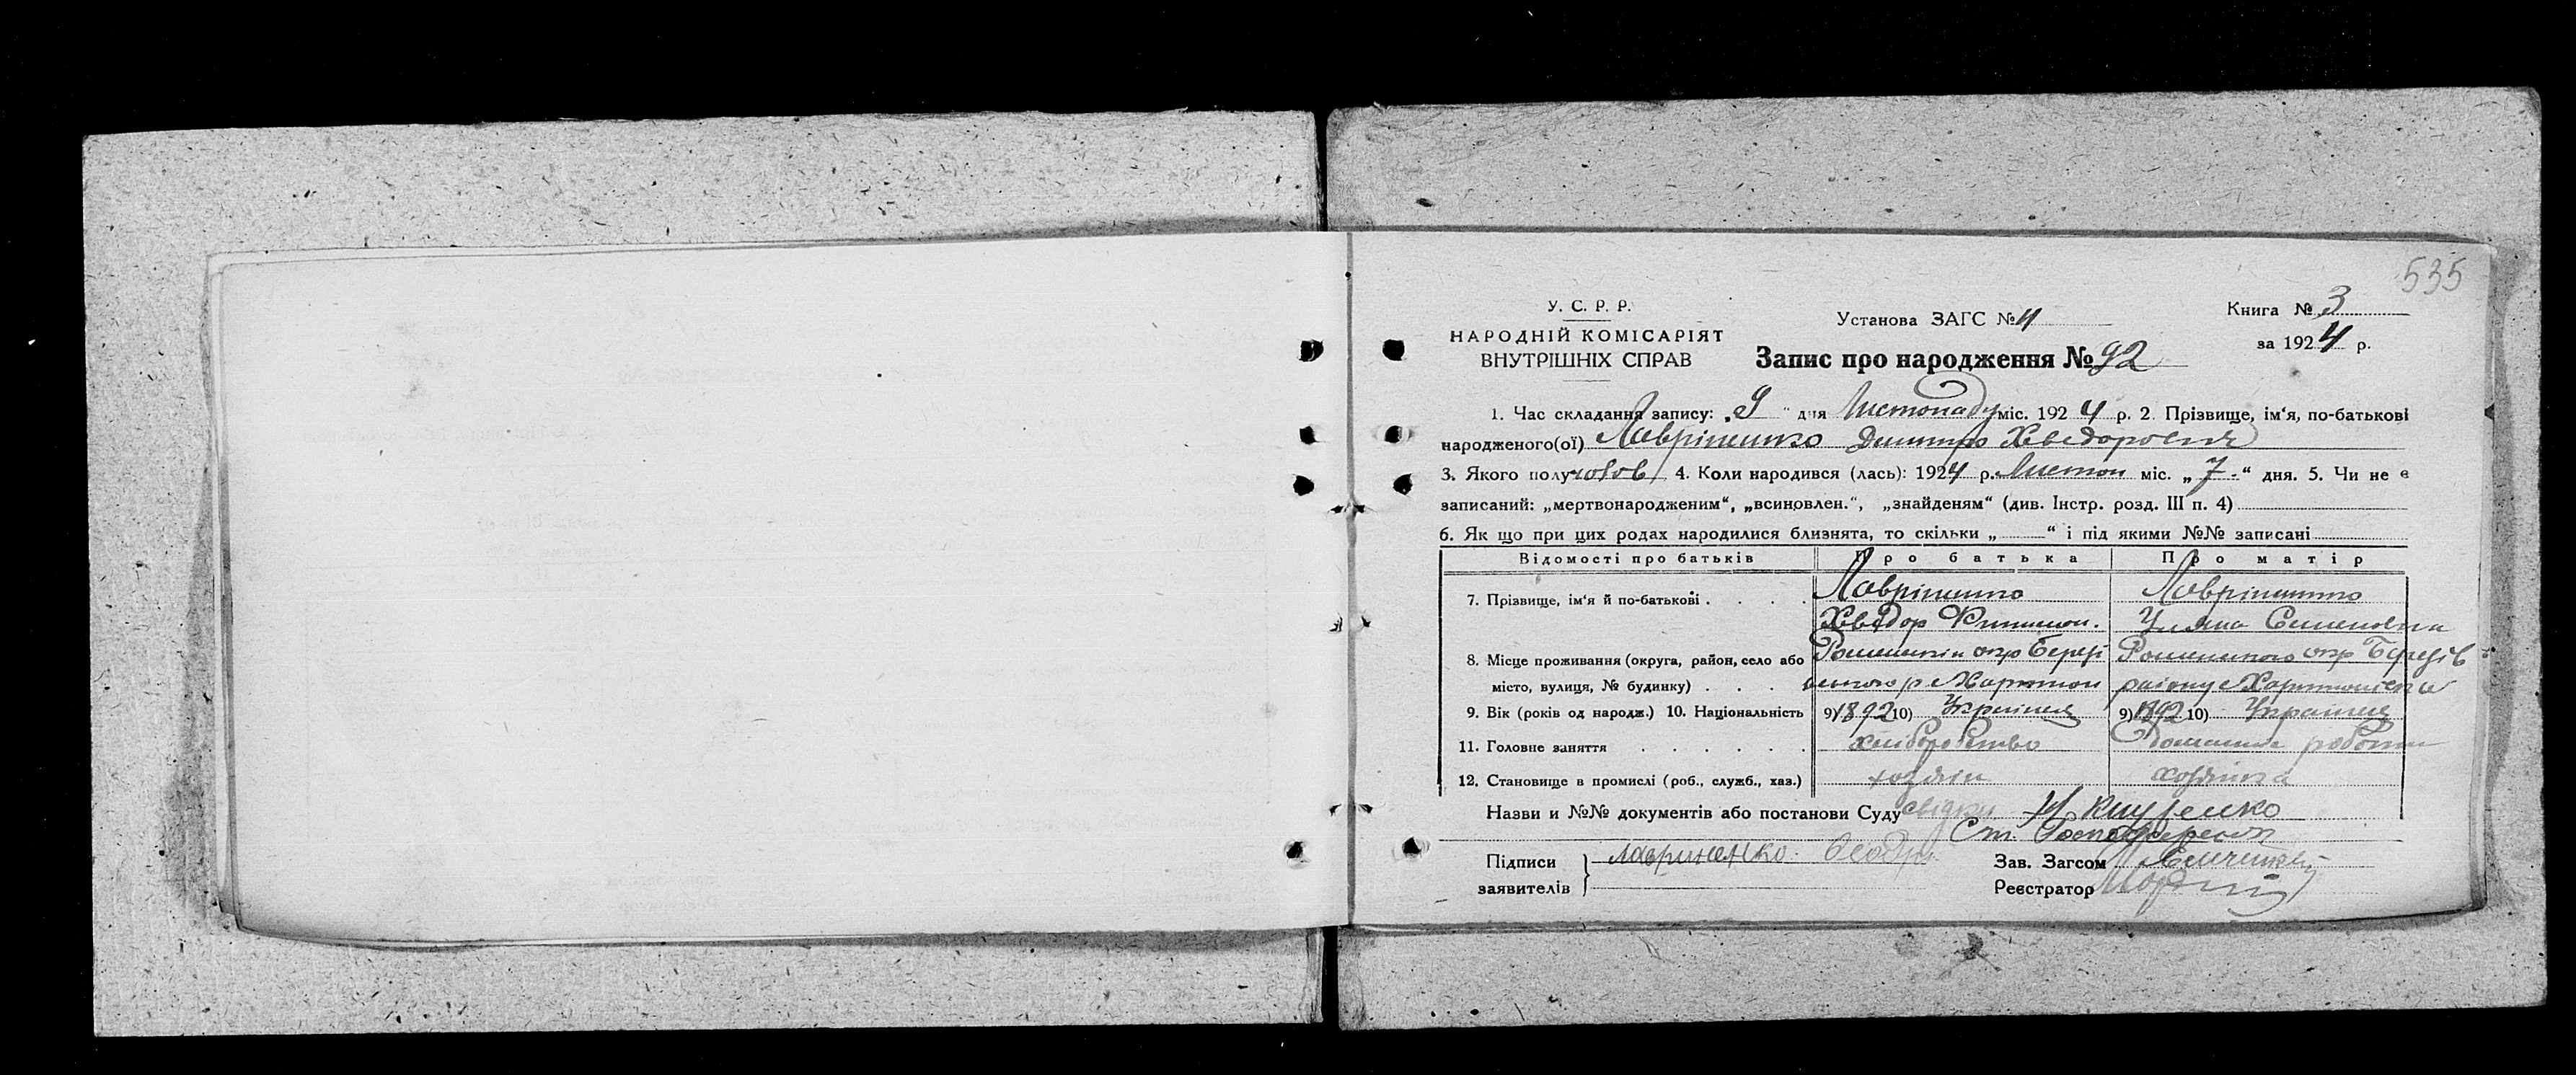 535
У. С. Р. Р.
НАРОДНІЙ КОМІСАРІЯТ
ВНУТРІШНІХ СПРАВ
Установа ЗАГС № 4
Книга № 3
за 1924 р.
Запис про народження № 92
1. Час складання запису: „9“ дня Листопаду міс. 1924 р. 2. Прізвище, ім‘я, по-батькові
народженого(ої) Лавріненко Дмитро Хведорович
3. Якого полу чолов 4. Коли народився (лась): 1924 р. Листоп міс. „7“ дня. 5. Чи не є
записаний: „мертвонародженим“, „всиновлен.“, „знайденям“ (див. Інстр. розд. III п. 4)
6. Як що при цих родах народилися близнята, то скільки „ “ і під якими №№ записані
Відомості про батьків Про батька Про матір
7. Прізвище, ім‘я й по-батькові . . . . Лавріненко Лавріненко
Хведор Уляна Семеновна
8. Місце проживання (округа, район, село або Роменської окр Берез Роменского окр Березів
місто, вулиця, № будинку) . . . .
9. Вік (років од народж.) 10. Національність 9) 1892 10) Українец 9) 1892 10) Українец
11. Головне заняття . . . . . . хліборобство домашня робота
12. Становище в промислі (роб., служб., хаз.) хозяін хозяінка
Назви и №№ документів або постанови Суду свідки
Підписи
заявителів
лавриненко
Зав. Загсом
Реєстратор